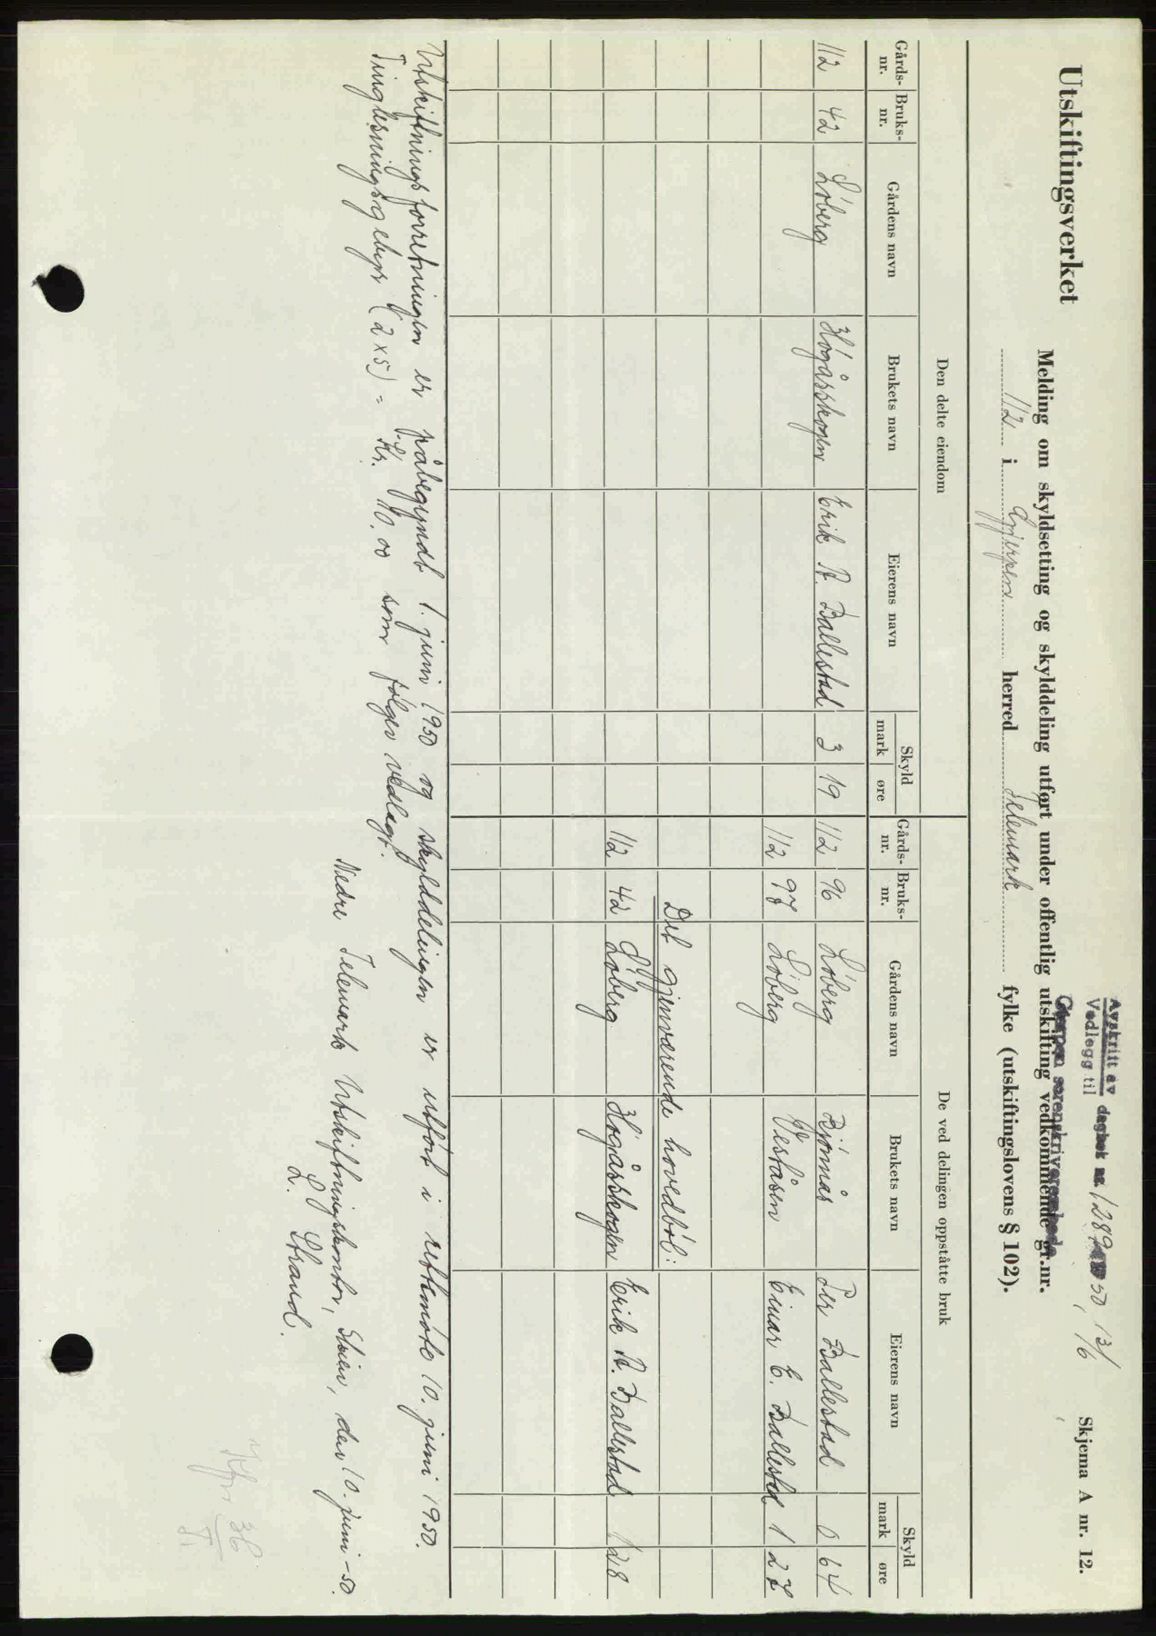 Avskrift av
Vedlegg til dagbok nr. 1289 1950, 13/6
Gjerpen sorenskriverembede
Skjema A nr. 12.
Utskiftingsverket
Melding om skyldsetting og skylddeling utført under offentlig utskifting vedkommende gr.nr.
112 i Gjerpen herred Telemark fylke (utskiftingslovens § 102).
Den delte eiendom
De ved delingen oppståtte bruk
Gårds-nr. Bruks-nr. Gårdens navn Brukets navn Eierens navn Skyld mark øre Gårds-nr. Bruks-nr. Gårdens navn Brukets navn Eierens navn Skyld mark øre
112 42 Løberg Høgåsskogen Erik A. Ballestad 3 19 112 96 Løberg Bjønnås Per Ballestad 0 64
112 97 Løberg Veståsen Einar E. Ballestad 1 27
Det gjenværende hovedbøl:
112 42 Løberg Høgåsskogen Erik A. Ballestad 1 28
Utskiftningsforretningen er påbegyndt 1. juni 1950 og skylddelingen er utført i rettsmøte 10. juni 1950.
Tinglesningsgebyr (2 x 5) = Kr. 10.00 som følger vedlagt.
Nedre Telemark Utskiftningskontor, Skien, den 10. juni -50.
L. Strand.